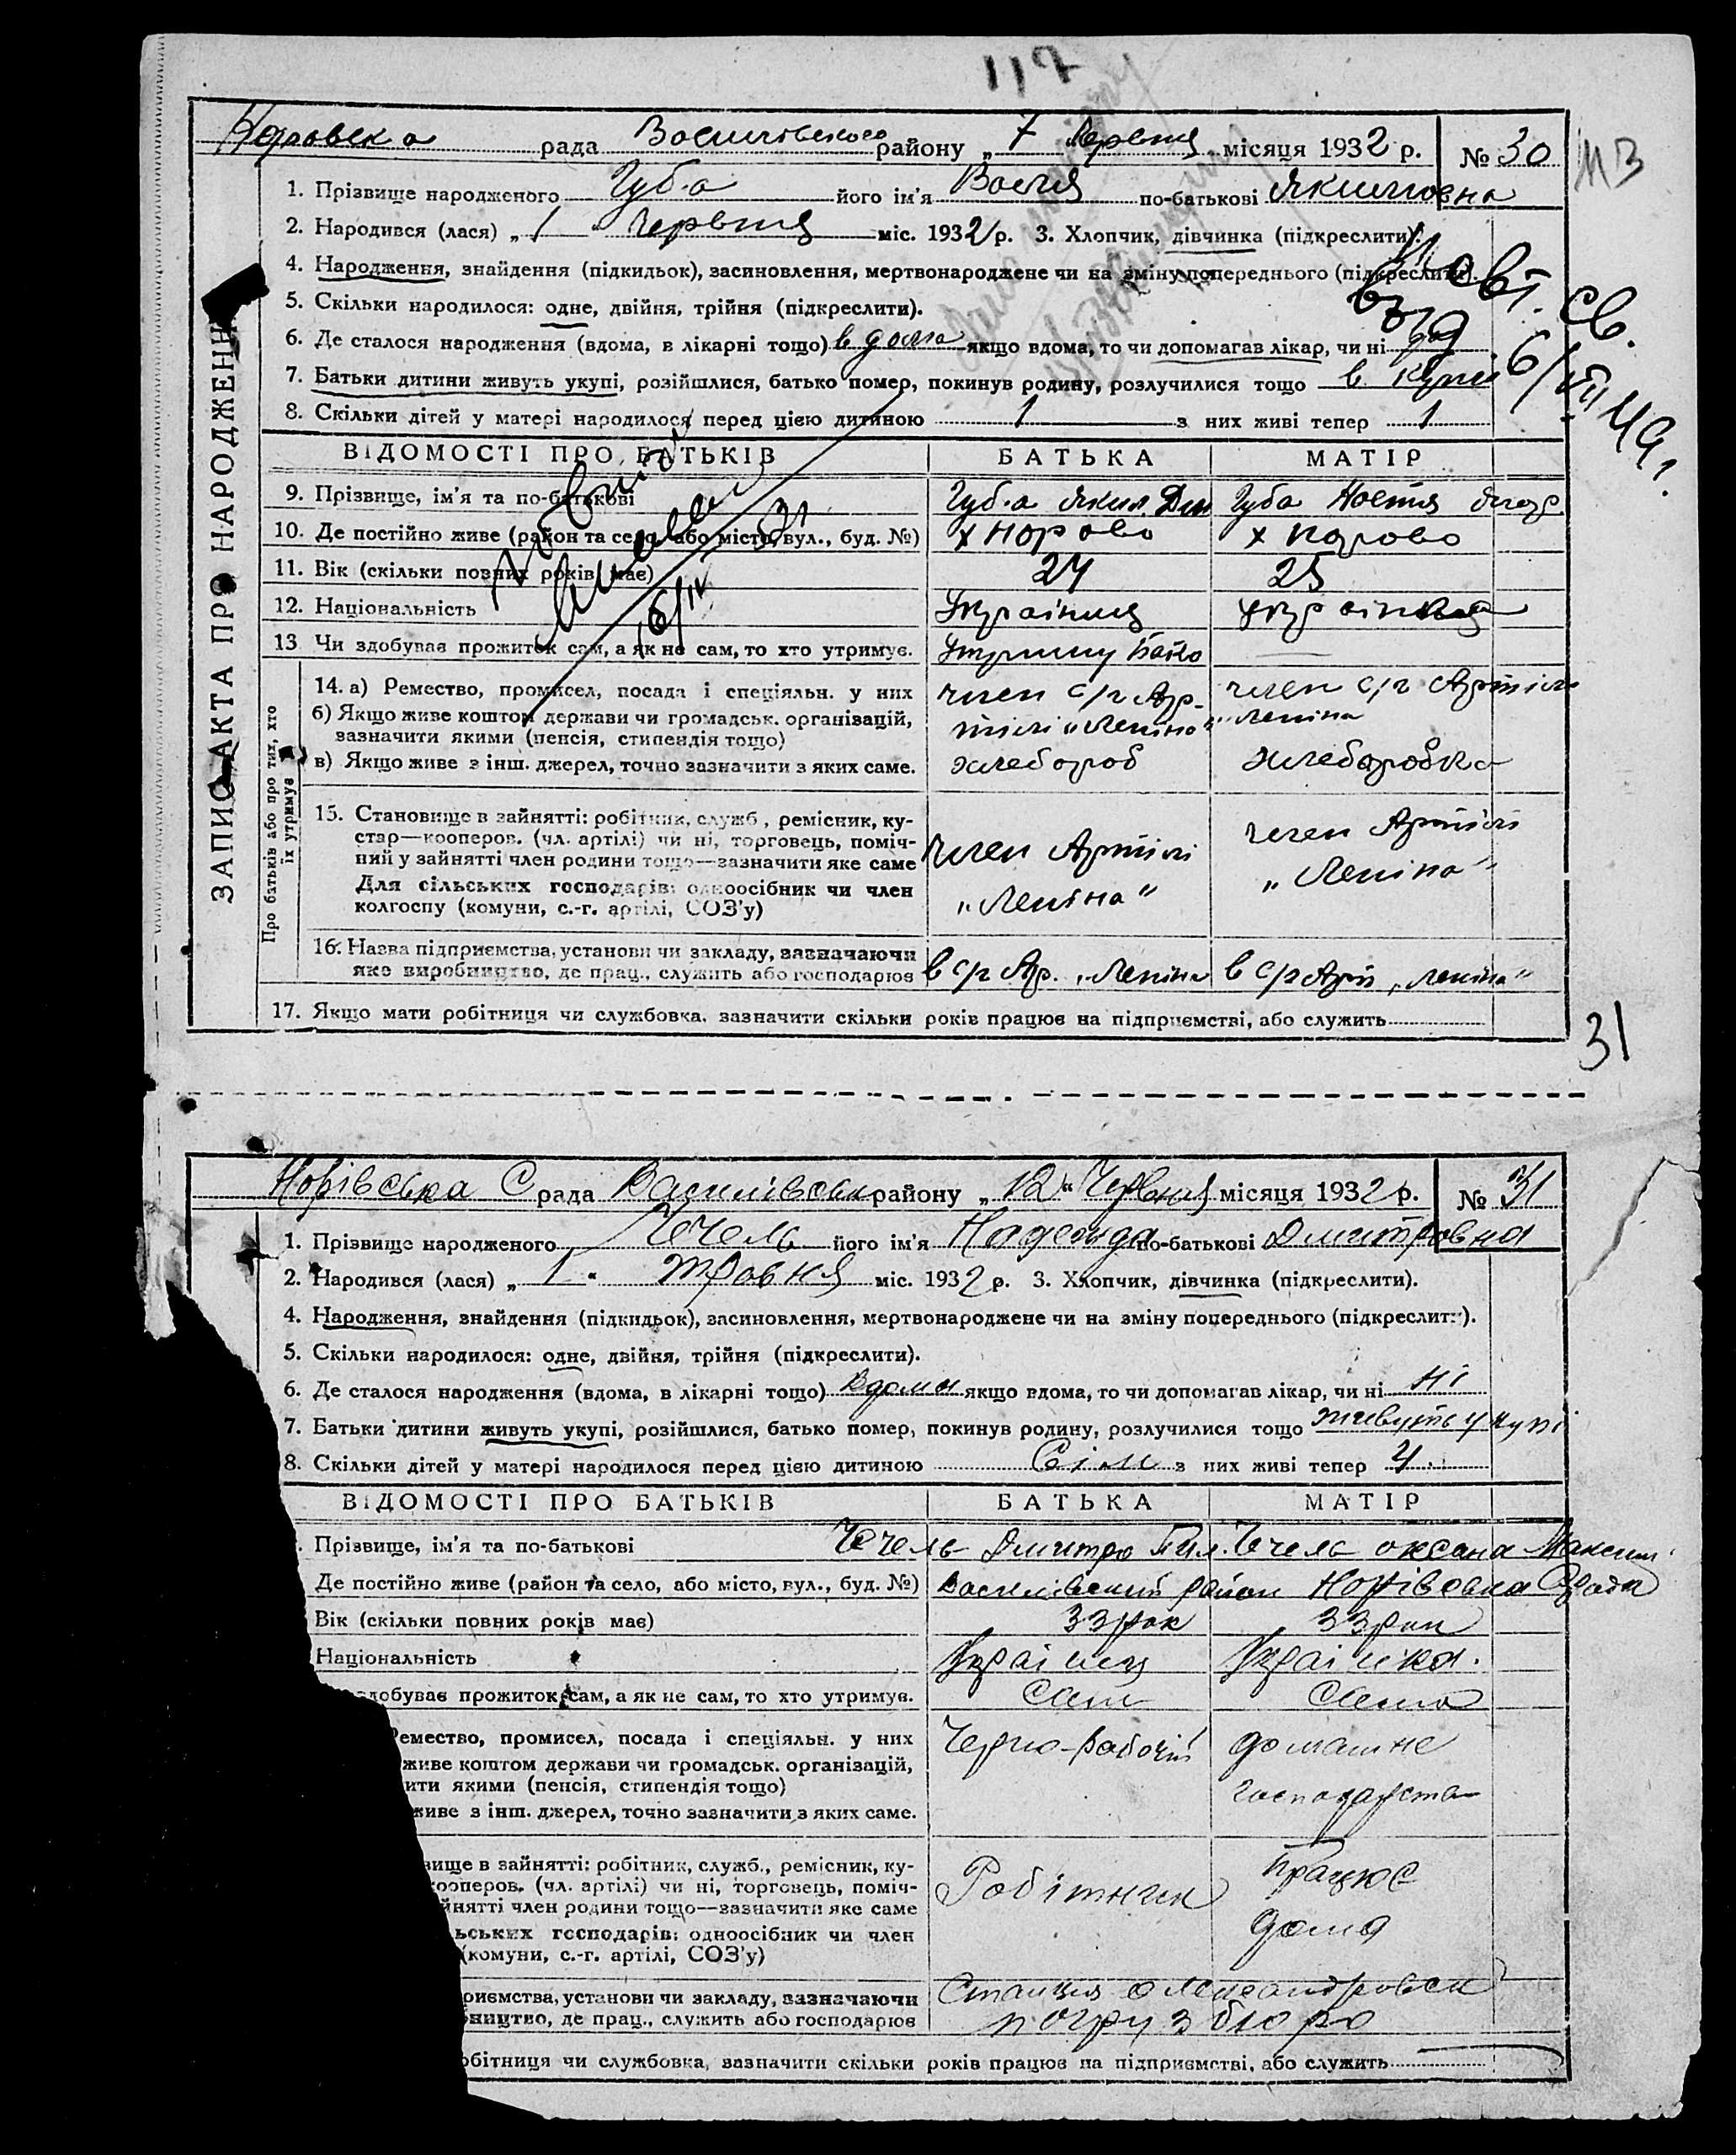 117
рада Василівського району „ 7 Червня місяця 1932 р. № 30
113
1. Прізвище народженого Губа його ім'я по-батькові Якимовна
2. Народився (лася) „ 1 " червня міс. 1932 р. 3. Хлопчик, дівчинка (підкреслити).
4. Народження, знайдення (підкидьок), засиновлення, мертвонароджене чи на зміну попереднього (підкреслити).
5. Скільки народилося: одне, двійня, трійня (підкреслити).
6. Де сталося народження (вдома, в лікарні тощо) в дома якщо вдома, то чи допомагав лікар, чи ні
7. Батьки дитини живуть укупі, розійшлися, батько помер, покинув родину, розлучилися тощо в купи
8. Скільки дітей у матері народилося перед цією дитиною 1 з них живі тепер 1
ВІДОМОСТІ ПРО БАТЬКІВ БАТЬКА МАТІР
9. Прізвище, ім'я та по-батькові Губа Яким Губа
10. Де постійно живе (район та село, або місто, вул., буд. №)
11. Вік (скільки повних років має) 24 25
12. Національність
13 Чи здобував прожиток сам, а як не сам, то хто утримує.
14. а) Ремество, промисел, посада і спеціяльн. у них член с/г Ар- член с/г Артіли
б) Якщо живе коштом держави чи громадськ. організацій, тілі „Леніна" „Леніна
зазначити якими (пенсія, стипендія тощо)
в) Якщо живе з інш. джерел, точно зазначити з яких саме. хлебороб хлеборобка
15. Становище в зайнятті: робітник, служб., ремісник, ку-
стар—кооперов. (чл. артілі) чи ні, торговець, поміч- член Артілі
ний у зайнятті член родини тощо—зазначити яке саме член Артілі „Леніна"
Для сільських господарів: одноосібник чи член
колгоспу (комуни, с.-г. артілі, СОЗ'у) „Леніна"
16. Назва підприємства, установи чи закладу, зазначаючи
яке виробництво, де прац., служить або господарює в с/г Ар. „Леніна в с/г Арт „Леніна"
17. Якщо мати робітниця чи службовка, зазначити скільки років працює на підприємстві, або служить
ЗАПИС АКТА ПРО НАРОДЖЕННЯ
Про батьків або про тих, хто
їх утримує
31
Норівська С рада Василівськ району „ 12 " Червня місяця 1932 р. № 31
1. Прізвище народженого Чечель його ім'я Надежда по-батькові Дмитровна
2. Народився (лася) „ 1 " травня міс. 1932 р. 3. Хлопчик, дівчинка (підкреслити).
4. Народження, знайдення (підкидьок), засиновлення, мертвонароджене чи на зміну попереднього (підкреслити).
5. Скільки народилося: одне, двійня, трійня (підкреслити).
6. Де сталося народження (вдома, в лікарні тощо) вдома якщо вдома, то чи допомагав лікар, чи ні ні
7. Батьки дитини живуть укупі, розійшлися, батько помер, покинув родину, розлучилися тощо живуть укупі
8. Скільки дітей у матері народилося перед цією дитиною Сім з них живі тепер 4
ВІДОМОСТІ ПРО БАТЬКІВ БАТЬКА МАТІР
Прізвище, ім'я та по-батькові Чечель Дмитро Пил. Чечель Оксана Максим.
Де постійно живе (район та село, або місто, вул., буд. №) Василівский район Норівська Срада
Вік (скільки повних років має) 33 рок 33 рик
Національність Українец Українка.
здобував прожиток сам, а як не сам, то хто утримує. Сам Сама
Ремество, промисел, посада і спеціяльн. у них Черно-рабочій домашне
живе коштом держави чи громадськ. організацій,
ити якими (пенсія, стипендія тощо) господарства
живе з інш. джерел, точно зазначити з яких саме.
вище в зайнятті: робітник, служб., ремісник, ку-
кооперов. (чл. артілі) чи ні, торговець, поміч- Робітник Працює
йнятті член родини тощо—зазначити яке саме
льських господарів: одноосібник чи член дома
(комуни, с.-г. артілі, СОЗ'у)
риємства, установи чи закладу, зазначаючи Станция Олександровск
ництво, де прац., служить або господарює погрузбюро
обітниця чи службовка, зазначити скільки років працює на підприємстві, або служить